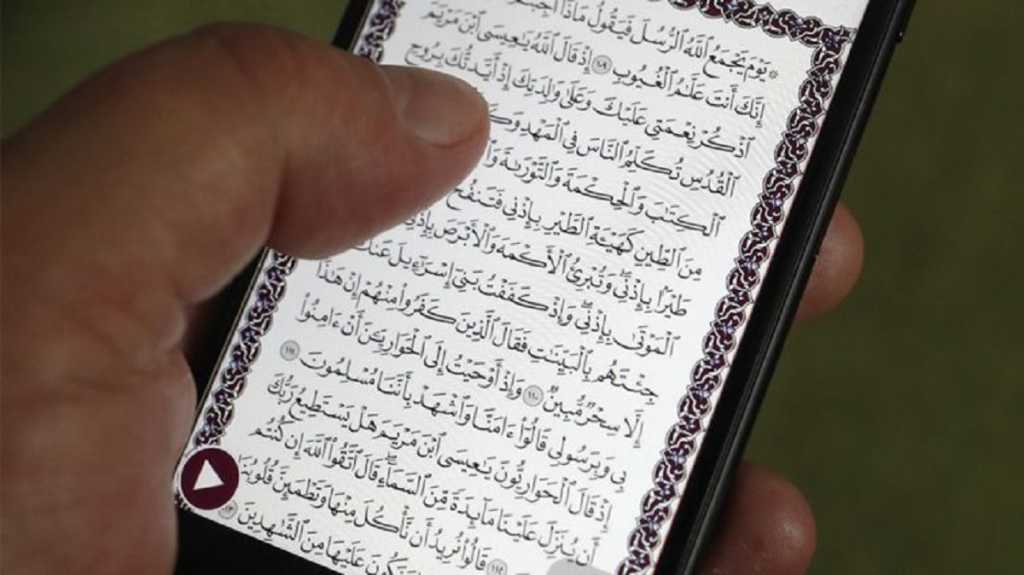 ۞ يَوْمَ يَجْمَعُ ٱللَّهُ ٱلرُّسُلَ فَيَقُولُ مَاذَآ أُجِبْتُمْ
إِنَّكَ أَنتَ عَلَّٰمُ ٱلْغُيُوبِ ١٠٩ إِذْ قَالَ ٱللَّهُ يَٰعِيسَى ٱبْنَ مَرْيَمَ
ٱذْكُرْ نِعْمَتِي عَلَيْكَ وَعَلَىٰ وَٰلِدَتِكَ إِذْ أَيَّدتُّكَ بِرُوحِ
ٱلْقُدُسِ تُكَلِّمُ ٱلنَّاسَ فِي ٱلْمَهْدِ
ٱلْكِتَٰبَ وَٱلْحِكْمَةَ وَٱلتَّوْرَىٰةَ
مِنَ ٱلطِّينِ كَهَيْـَٔةِ ٱلطَّيْرِ بِإِذْنِي فَتَنفُخُ
طَيْرًۢا بِإِذْنِي وَتُبْرِئُ ٱلْأَكْمَهَ وَٱلْأَبْرَصَ بِإِذْنِي
ٱلْمَوْتَىٰ بِإِذْنِي وَإِذْ كَفَفْتُ بَنِيٓ إِسْرَٰٓءِيلَ عَنكَ
جِئْتَهُم بِٱلْبَيِّنَٰتِ فَقَالَ ٱلَّذِينَ كَفَرُوا۟ مِنْهُمْ إِنْ هَٰذَآ
إِلَّا سِحْرٌ مُّبِينٌ ١١٠ وَإِذْ أَوْحَيْتُ إِلَى ٱلْحَوَارِيِّـۧنَ أَنْ ءَامِنُوا۟
بِي وَبِرَسُولِي قَالُوٓا۟ ءَامَنَّا وَٱشْهَدْ بِأَنَّنَا مُسْلِمُونَ ١١١
إِذْ قَالَ ٱلْحَوَارِيُّونَ يَٰعِيسَى ٱبْنَ مَرْيَمَ هَلْ يَسْتَطِيعُ رَبُّكَ
أَن يُنَزِّلَ عَلَيْنَا مَآئِدَةً مِّنَ ٱلسَّمَآءِ قَالَ ٱتَّقُوا۟ ٱللَّهَ إِن كُنتُم
١١٢ قَالُوا۟ نُرِيدُ أَن نَّأْكُلَ مِنْهَا وَتَطْمَئِنَّ قُلُوبُنَا
وَنَكُونَ عَلَيْهَا مِنَ ٱلشَّٰهِدِينَ ١١٣